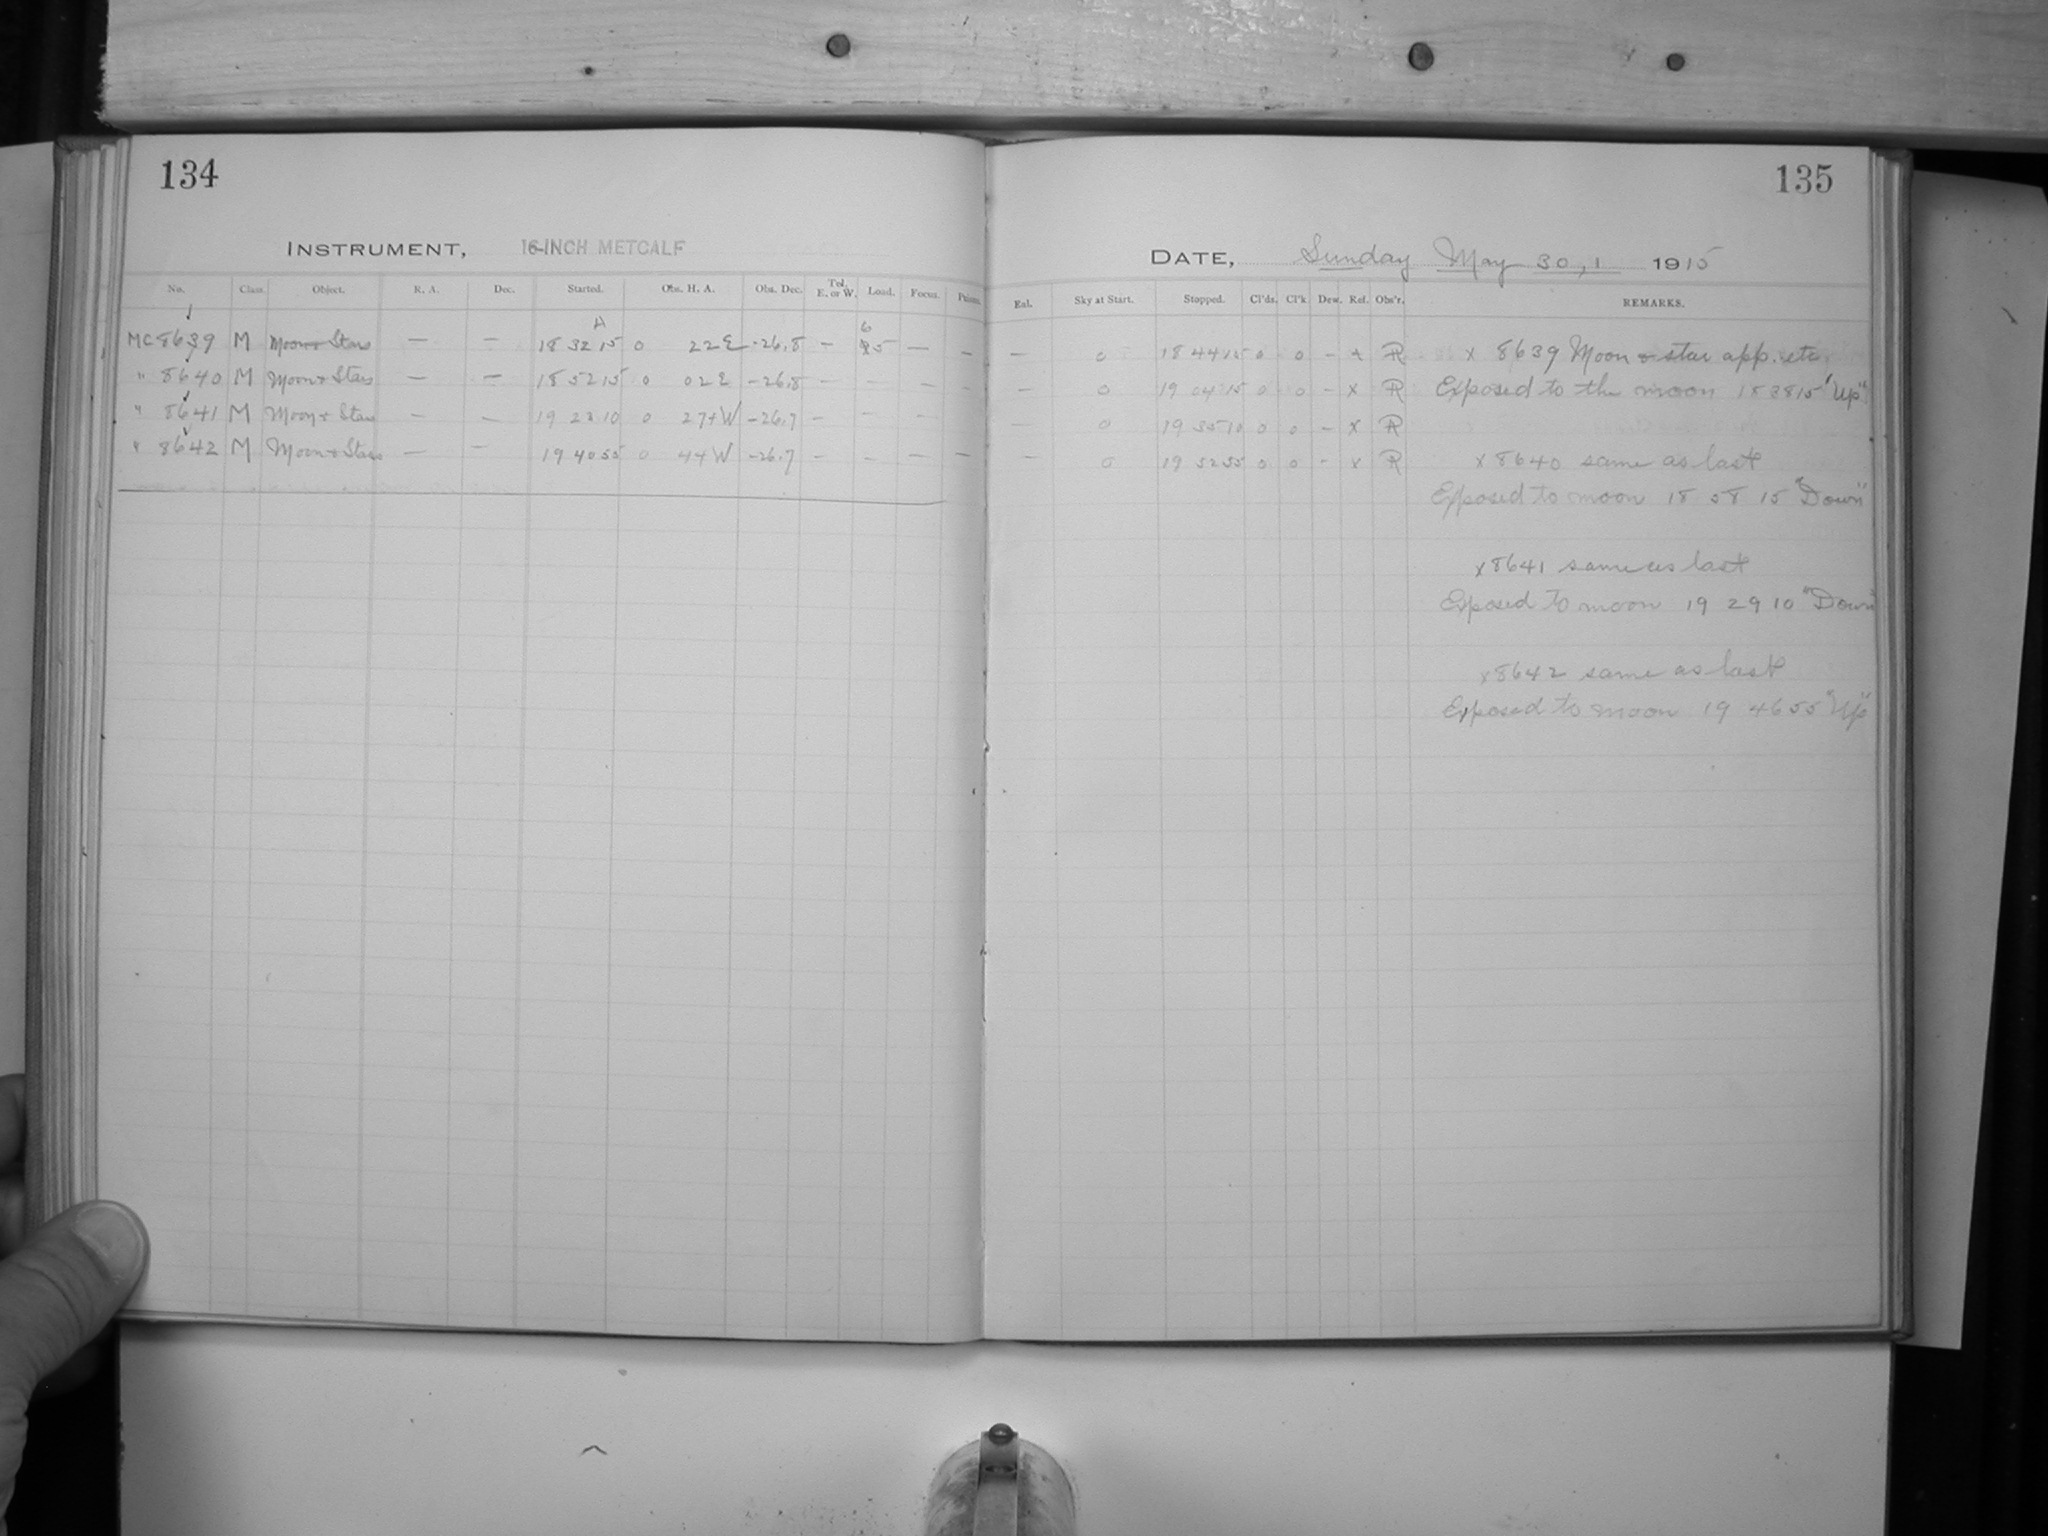 134
INSTRUMENT, 16-INCH METCALF
No. Class. Object. R. A. Dec. Started. Obs. H. A. Obs. Dec. Tel. E. or W. Load. Focus.
MC 8639 M Moon & Stars — — 18 32 15 0 22 E -26.8 — 5 — —
" 8640 M Moon & Stars — — 18 52 15 0 02 E -26.8 — — — —
" 8641 M Moon & Stars — — 19 23 10 0 27+W -26.7 — — — —
" 8642 M Moon & Stars — — 19 40 55 0 44 W -26.7 — — — —
135
DATE, Sunday May 30, 1 1915
Sky at Start. Stopped. Cl'ds. Cl'k Dew. Rel. Obs'r. REMARKS.
— 0 18 44 15 0 0 - x R x 8639 Moon & star app. etc.
— 0 19 04 15 0 0 - x R Exposed to the moon 18 38 15 "Up"
— 0 19 35 10 0 0 - x R
— 0 19 52 55 0 0 - x R x 8640 same as last
Exposed to moon 18 58 15 "Down"
x 8641 same as last
Exposed to moon 19 29 10 "Down"
x 8642 same as last
Exposed to moon 19 46 55 "Up"